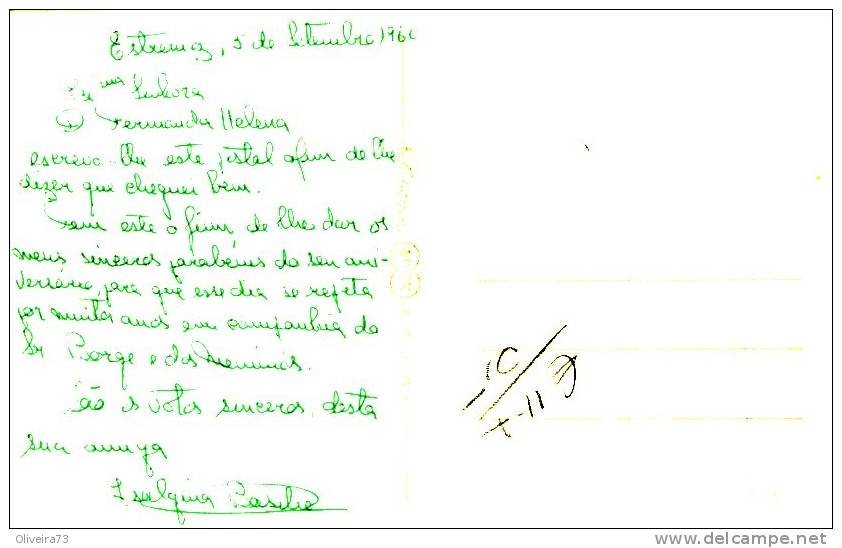 Estremoz, 5 de Setembro 196
Exma Senhora
D Fernanda Helena
escrevo-lhe este postal afim de lhe
dizer que cheguei bem.
Vem este o fim de lhe dar os
meus sinceros parabéns do seu ani-
versário, para que esse dia se repita
por muitos anos em companhia do
Sr Borge e dos meninos.
São os votos sinceros, desta
sua amiga
Isalgina Basilio
Oliveira73
www.delcampe.net